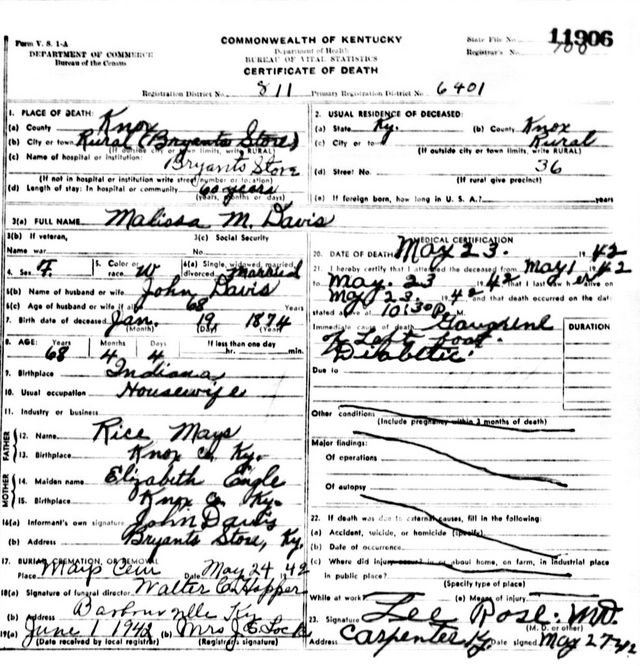 Form V. S. 1-A
DEPARTMENT OF COMMERCE
Bureau of the Census
COMMONWEALTH OF KENTUCKY
Department of Health
BUREAU OF VITAL STATISTICS
CERTIFICATE OF DEATH
State File No. 11906
Registrar's No.
Registration District No. 811 Primary Registration District No. 6401
1. PLACE OF DEATH:
(a) County Knox
(b) City or town Rural (Bryants Store)
(If outside city or town limits, write RURAL)
(c) Name of hospital or institution:
Bryants Store
(If not in hospital or institution write street number or location)
(d) Length of stay: In hospital or community 60 years
(years, months or days)
2. USUAL RESIDENCE OF DECEASED:
(a) State Ky. (b) County Knox
(c) City or town Rural
(If outside city or town limits, write RURAL)
(d) Street No. 36
(If rural give precinct)
(e) If foreign born, how long in U. S. A.? years
3(a) FULL NAME Malissa M. Davis
3(b) If veteran, 3(c) Social Security
Name war No.
4. Sex F. 5. Color or race W 6(a) Single, widowed, married, divorced married
6(b) Name of husband or wife John Davis
6(c) Age of husband or wife if alive 68 Years
7. Birth date of deceased Jan. 19 1874
(Month) (Day) (Year)
8. AGE: Years Months Days If less than one day
68 4 4 hr. min.
9. Birthplace Indiana
10. Usual occupation Housewife
11. Industry or business
FATHER
12. Name Rice Mays
13. Birthplace Knox Co. Ky.
MOTHER
14. Maiden name Elizabeth Engle
15. Birthplace Knox Co. Ky.
16(a) Informant's own signature John Davis
(b) Address Bryants Store, Ky.
17. BURIAL, CREMATION, OR REMOVAL
Place Mays Cem Date May 24 1942
18(a) Signature of funeral director Walter C. Hopper
(b) Address Barbourville Ky
19(a) June 1 1942 (b) Mrs J E Lock
(Date received by local registrar) (Registrar's signature)
MEDICAL CERTIFICATION
20. DATE OF DEATH May 23. 1942
21. I hereby certify that I attended the deceased from May 1 1942
to May. 23 1942 that I last saw her alive on
May 23. 1942 and that death occurred on the date
stated above at 10:30 P. M.
Immediate cause of death Gangrene
of Left foot.
Diabetic.
DURATION
Due to
Other conditions
(Include pregnancy within 3 months of death)
Major findings:
Of operations
Of autopsy
22. If death was due to external causes, fill in the following:
(a) Accident, suicide, or homicide (specify)
(b) Date of occurrence
(c) Where did injury occur? in or about home, on farm, in industrial place
in public place?
(Specify type of place)
While at work? (e) Means of injury
23. Signature Lee Rose. M.D.
(M. D. or other)
Address Carpenter Ky. Date signed May 27 42